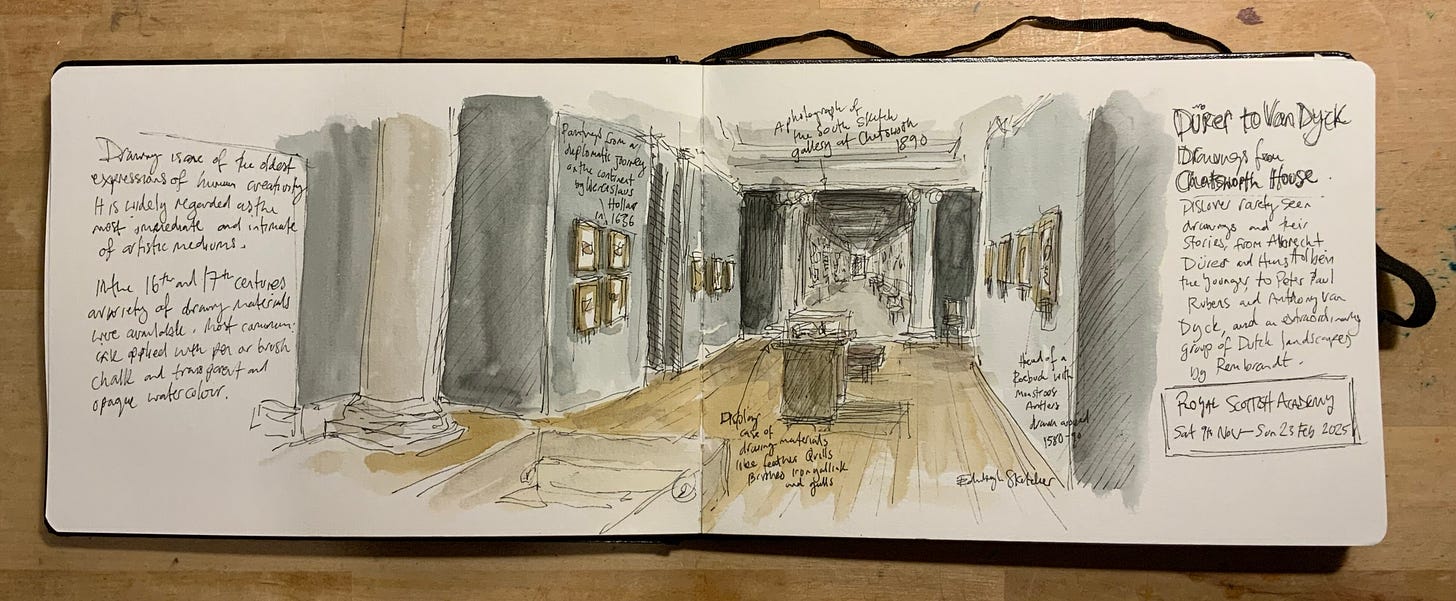 Drawing is one of the oldest
expressions of human creativity
It is widely regarded as the
most immediate and intimate
of artistic mediums.
In the 16th and 17th centuries
a variety of drawing materials
were available. Most common:
ink applied with pen or brush
chalk and transparent and
opaque watercolour.
Paintings from a
diplomatic journey
on the continent
by Wenceslaus
Hollar
in 1636
A photograph of
the South Sketch
gallery at Chatsworth
1890
Display
case of
drawing materials
like feather Quills
Brushes iron gall ink
and
Head of a
Roebuck with
Monstrous
Antlers
drawn around
1580-90
Edinburgh Sketcher
Dürer to Van Dyck
Drawings from
Chatsworth House.
Discover rarely-seen
drawings and their
stories, from Albrecht
Dürer and Hans Holbein
the Younger to Peter Paul
Rubens and Anthony Van
Dyck, and an extraordinary
group of Dutch landscapes
by Rembrandt.
Royal Scottish Academy
Sat 9th Nov - Sun 23 Feb 2025